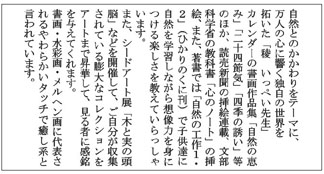 自然とのかかわりをテーマに、
万人の心に響く独自の世界を
拓いた〔穆 いつい〕先生。
カレンダーの書画作品「自然の恵
み」「二十四節気」「四季の誘い」等
のほか、読売新聞の挿絵連載、文部
科学省の教科書「心のノート」の挿
絵、また、著書では「自然の工作1・
2」(ひかりのくに刊)で子供達に
自然を学習しながら想像力を身に
つける楽しさを教えていらっしゃ
います。
また、シードアート展「木と実の頭
脳」などを開催して、ご自分が収集
されている膨大なコレクションを
アートまで昇華して、見る者に感銘
を与えてくれます。
書画・水彩画・メルヘン画に代表さ
れるやわらかいタッチで癒し系と
言われています。